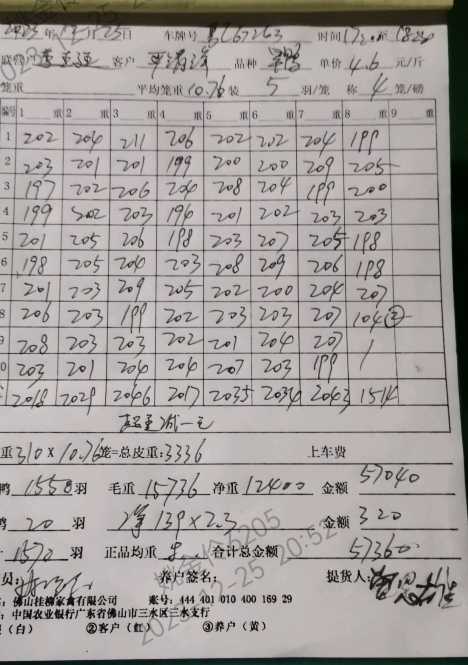 2023年11月25日 车牌号 时间17:20至18:20
客户 品种 单价4.6元/斤
笼重 平均笼重10.76装 5 羽/笼 称 4 笼/磅
编号 1 重 2 重 3 重 4 重 5 重 6 重 7 重 8 重 9 重
1 202 204 211 206 202 202 204 199
2 203 201 201 199 200 200 209 205
3 197 202 206 204 208 204 199 200
4 199 202 203 196 201 202 203 203
5 201 205 206 198 203 207 205 198
6 198 205 204 203 208 209 206 198
7 201 203 209 205 202 200 204 207
8 206 203 199 202 203 203 207 104②
9 208 203 203 202 201 204 207 /
0 203 201 204 204 207 203 199 /
2018 2029 2046 2017 2035 2034 2043 1514
超重减一元
重310×10.76笼=总皮重:3336 上车费
鸭 1550羽 毛重15736 净重12400 金额 57040
鸭 20 羽 139×2.3 金额 320
1570羽 正品均重 8. 合计总金额 57360
员: 养户签名: 提货人:
佛山桂柳家禽有限公司 账号: 444 401 010 400 169 29
中国农业银行广东省佛山市三水区三水支行
(白) ②客户(红) ③养户(黄)
2023-11-25 20:52